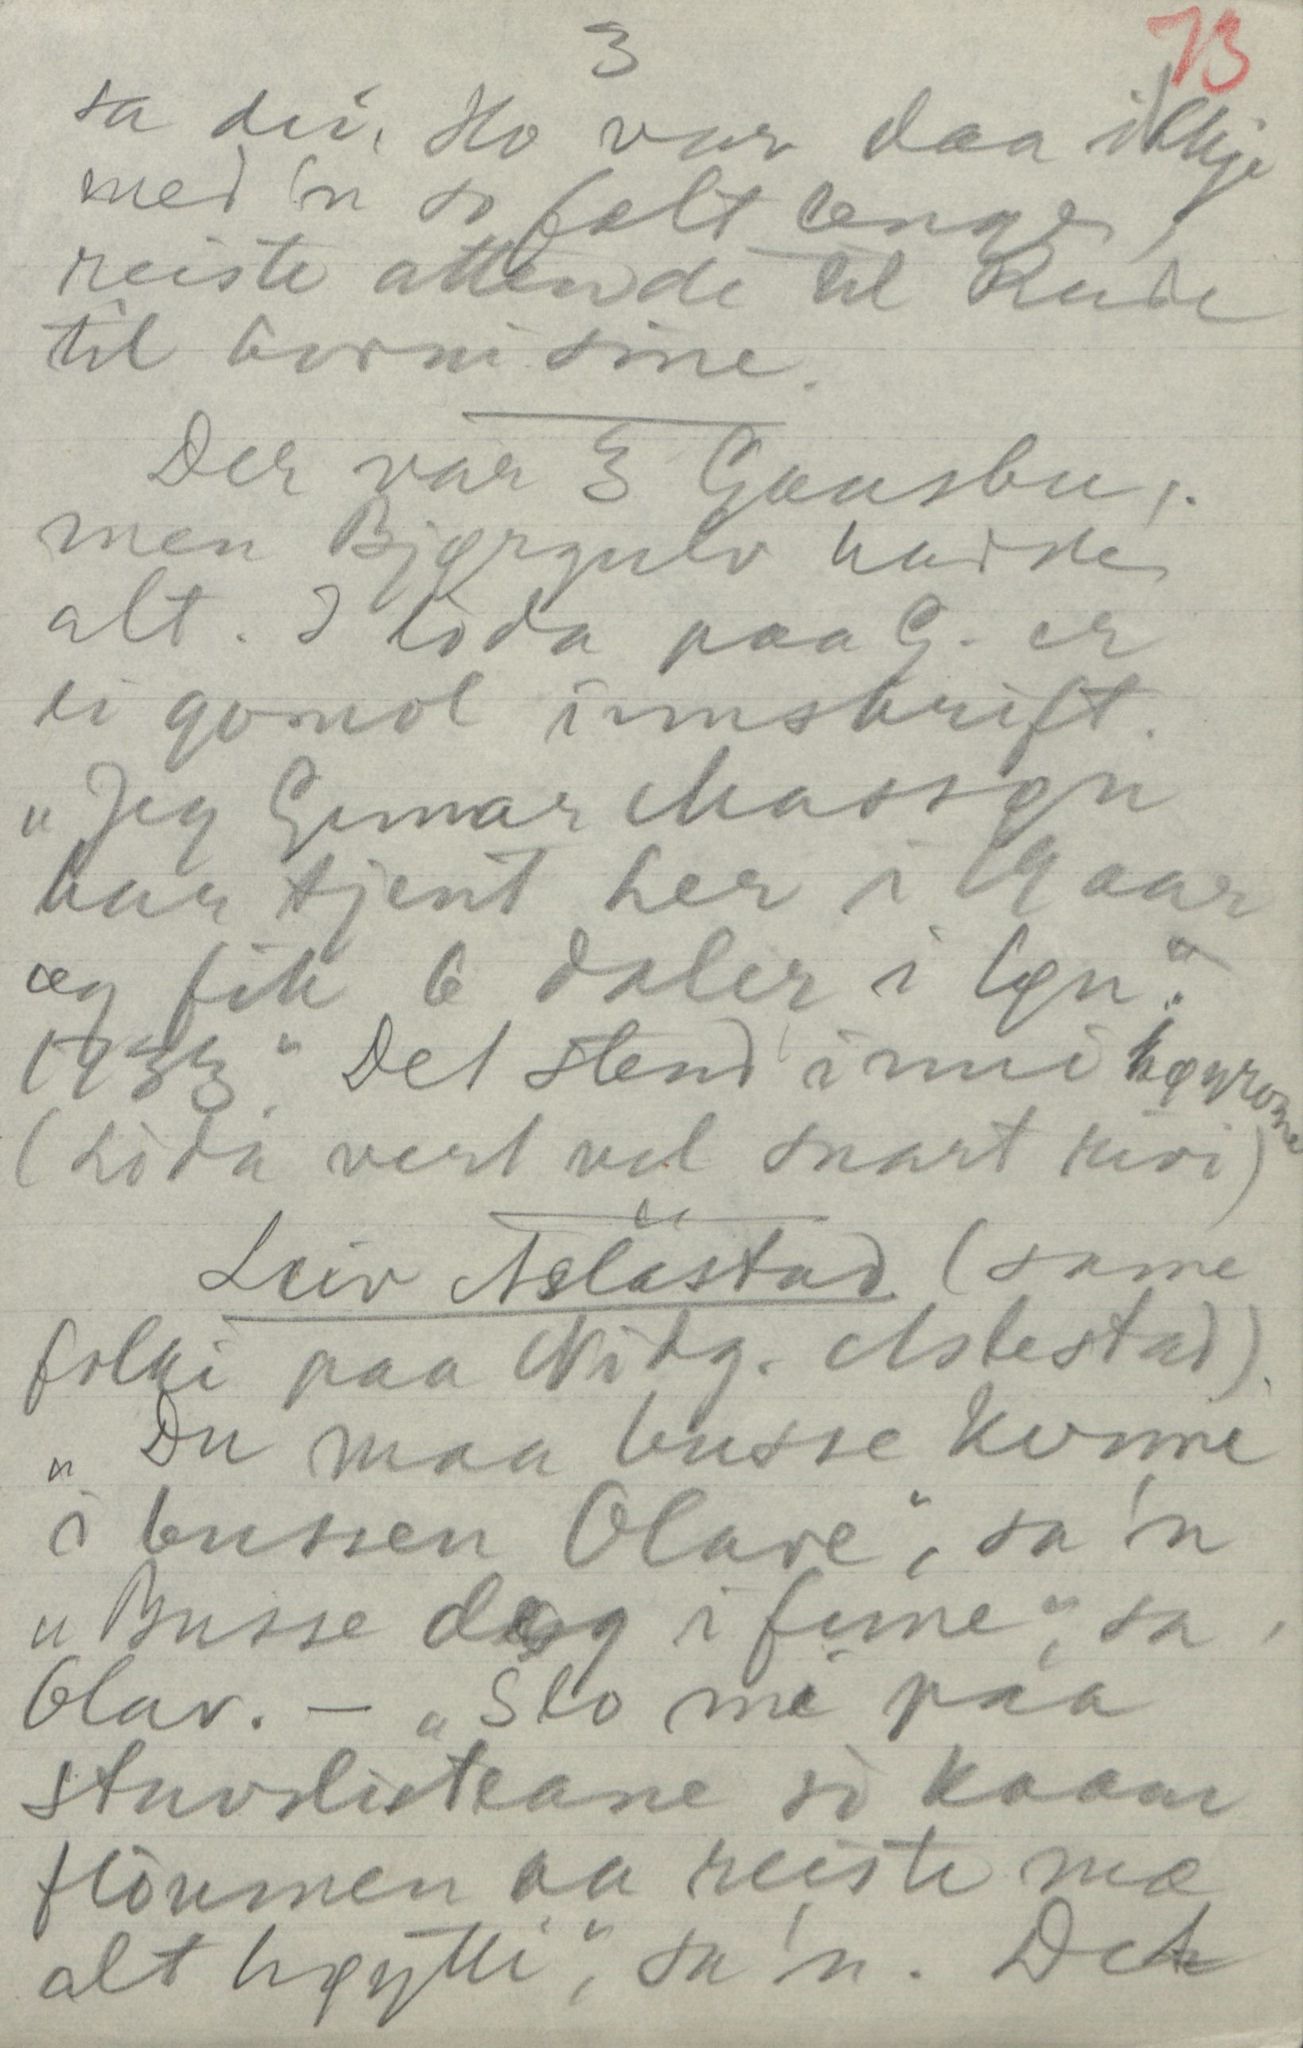 3
73
sa dei. Ho var daa ikkje
med 'n so fælt lenge,
reiste attende til Rude
til borni sine.
Der var 3 Gaasbu,
men Bjørgulv hadde
alt. I löda paa G. er
ei gomol innskrift.
„Jeg Gunnar Aasøn
har tjent her i 9 aar
og fik 6 daler i løn".
1733." Det stend inni høyrome
(Löda vert vel snart rivi)
Leiv Aslastad (same
folki paa Midg. Aslestad).
„Du maa busse kunne
i bussen Olave", sa 'n
„Busse deg i fume", sa
Olav. — „Slo me paa
Stuvslisteane so kaam
flöumen aa reiste mæ
alt høytti", sa 'n. Det